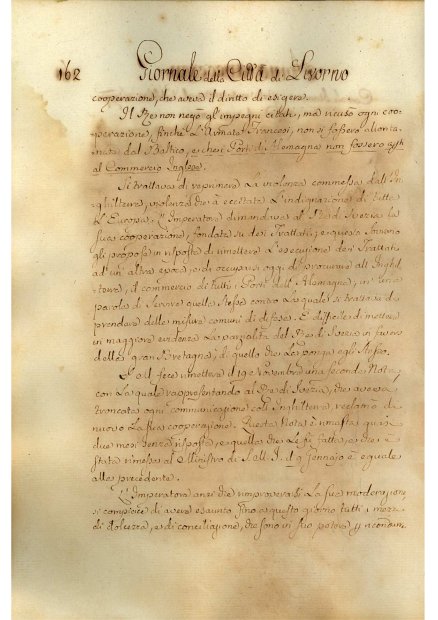 162 Giornale della Città di Livorno
cooperazione, che aveva il diritto di esigere.
Il Rè non negò gl'impegni citati, ma ricusò ogni coo-
perazione, finchè l'Armate Francesi, non si fossero allonta-
nate dal Baltico, e che i Porti d'Alemagna non fossero aperti
al Commercio Inglese.
Si trattava di reprimere la violenza commessa dall'In-
ghilterra, violenza che à eccitata l'indignazione di tutta
l'Europa: L'Imperatore dimandava al Rè di Svezia la
sua cooperazione, fondata su dei Trattati; e questo Sovrano
gli propose in risposta di rimettere l'esecuzione dei Trattati
ad un'altra epoca, e di occuparsi oggi di procurare all'Inghil-
terra, il commercio di tutti i Porti dell'Alemagna, in una
parola di servire quella stessa contro la quale si trattava di
prendere delle misure comuni di difesa. È difficile di mettere
in maggiore evidenza la parzialità del Rè di Svezia in favore
della gran Bretagna, di quello che la ponga egli stesso.
fece rimettere il 19 Novembre una seconda Nota,
con la quale rappresentando al Rè di Svezia, che aveva
troncata ogni comunicazione coll'Inghilterra, reclamò di
nuovo la sua cooperazione. Questa Nota è rimasta quasi
due mesi senza risposta, e quella che le fu fatta, e che è
stata rimessa al Ministro di S. M. I. il 9 Gennajo è eguale
alla precedente.
L'Imperatore anzi che rimproverarsi la sua moderazione
si compiace di avere esaurito fino a questo giorno tutti i mezzi
di dolcezza, e di conciliazione, che sono in suo potere, p